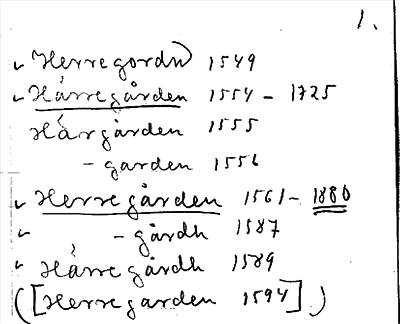 1.
Herregordn 1549
Härregården 1554 - 1725
Härgården 1555
- garden 1556
Herregården 1561 - 1880
- gårdh 1587
Härregårdh 1589
([Herregarden 1594])